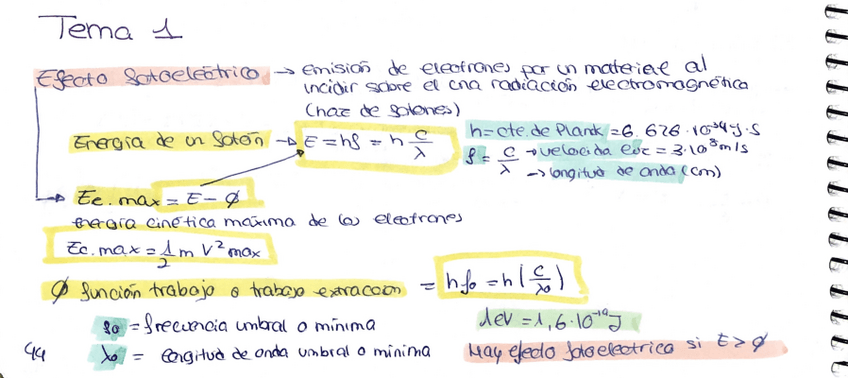 Tema 1
Efecto fotoeléctrico → emisión de electrones por un material al
incidir sobre el una radiación electromagnética
(haz de fotones)
Energía de un fotón → E = hf = h c/λ
h = cte. de Plank = 6.626·10⁻³⁴ J·s
f = c/λ → velocida luz = 3·10⁸ m/s
→ longitud de onda (m)
Ec.max = E - ϕ
energía cinética máxima de los electrones
Ec.max = 1/2 m v² max
ϕ función trabajo o trabajo extraccion = hf₀ = h(c/λ₀)
f₀ = frecuencia umbral o mínima
1eV = 1,6·10⁻¹⁹ J
λ₀ = longitud de onda umbral o mínima
Hay efecto fotoelectrico si E > ϕ
44